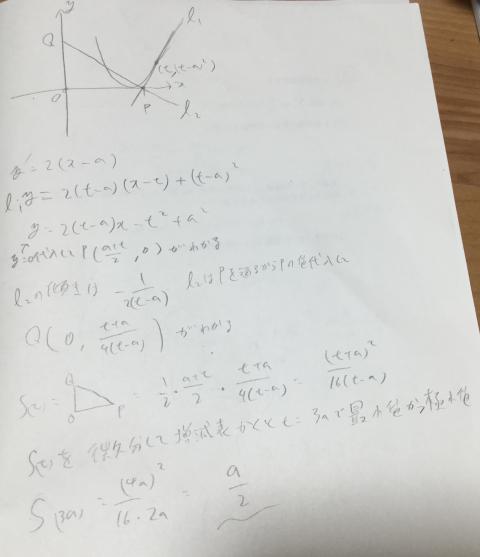 y
l₁
Q
(t, (t-a)²)
O
P
x
l₂
y' = 2(x-a)
l₁ y = 2(t-a)(x-t) + (t-a)²
y = 2(t-a)x - t² + a²
y=0代入して P((a+t)/2, 0) がわかる
l₂の傾きは -1/(2(t-a)) l₂はPを通るからPの値代入して
Q(0, (t+a)/(4(t-a))) がわかる
S(t) = Q O P = 1/2 · (a+t)/2 · (t+a)/(4(t-a)) = (t+a)²/(16(t-a))
S(t)を微分して増減表かくと t = 3aで最小値かつ極小値
S(3a) = (4a)²/(16·2a) = a/2